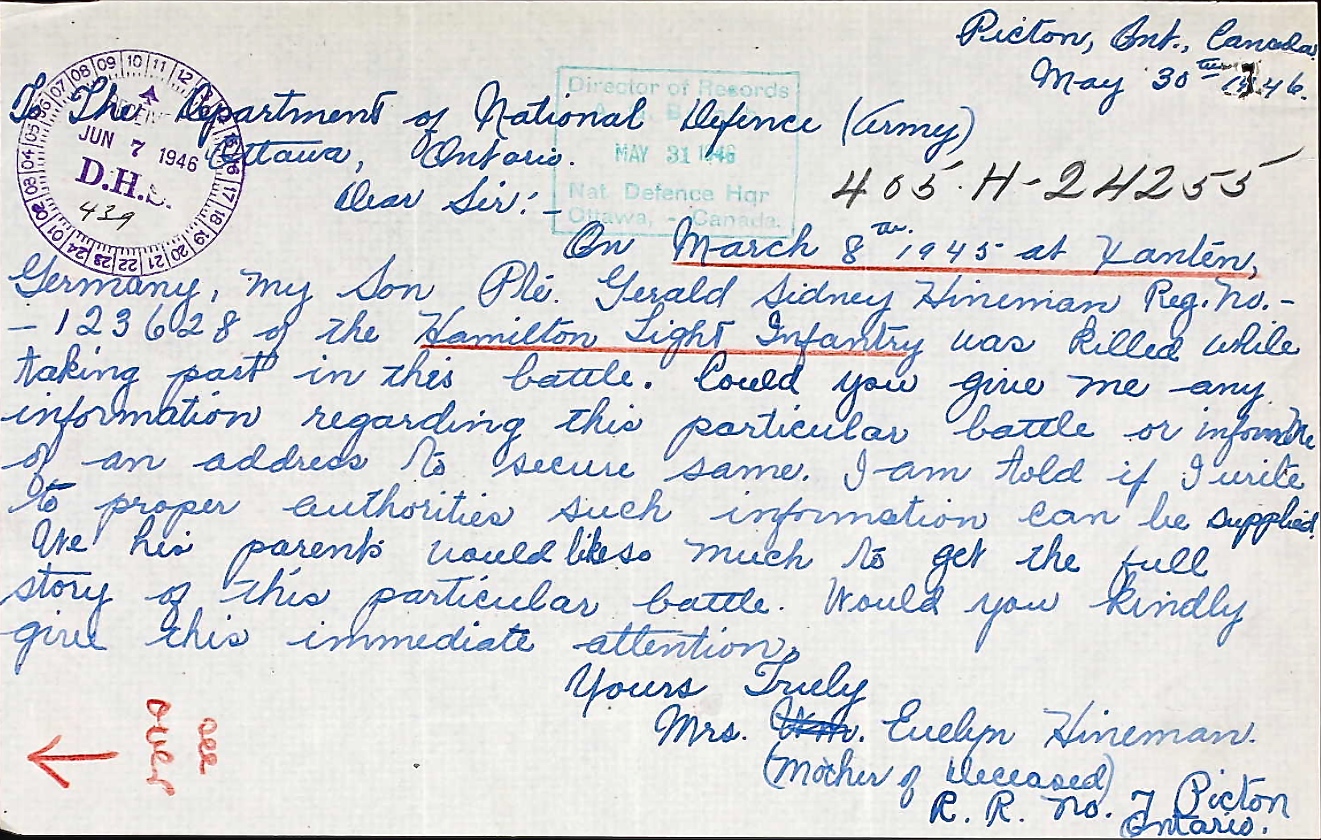 Picton, Ont., Canada.
May 30th 1946.
To The Department of National Defence (Army)
Ottawa, Ontario.
Dear Sir:-
405-H-24255
On March 8th 1945 at Xanten,
Germany, my Son Pte. Gerald Sidney Hineman Reg. No. -
- 123628 of the Hamilton Light Infantry was killed while
taking part in this battle. Could you give me any
information regarding this particular battle or inform me
of an address to secure same. I am told if I write
to proper authorities such information can be supplied.
We his parents would like so much to get the full
story of this particular battle. Would you kindly
give this immediate attention.
Yours Truly
Mrs. Wm. Evelyn Hineman.
(Mother of Deceased)
R. R. No. 7 Picton
Ontario.
see
over
JUN 7 1946
D.H.S.
439
01 02 03 04 05 06 07 08 09 10 11 12
16 17 18 19 20 21 22 23 24
Director of Records
MAY 31 1946
Nat. Defence Hqr
Ottawa, - Canada.